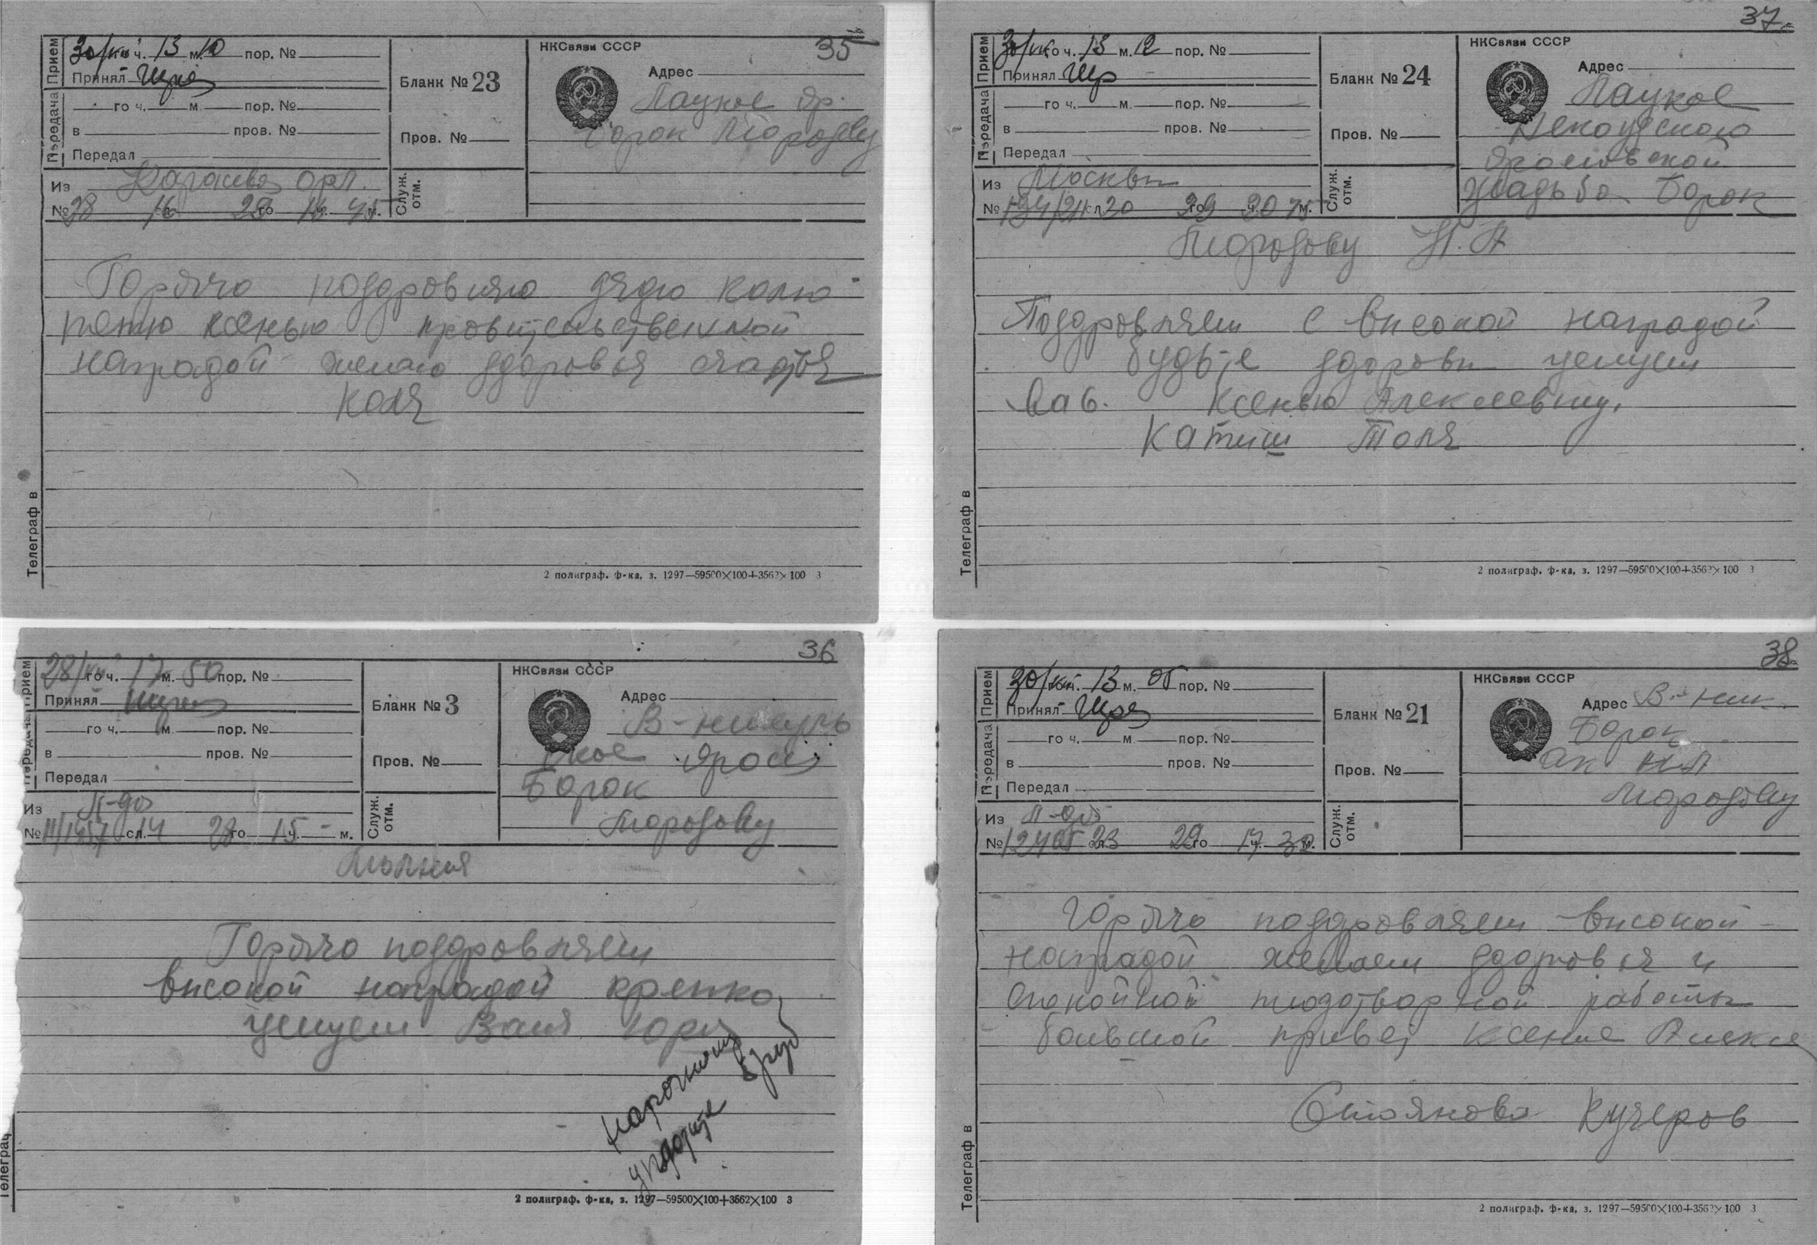 35
НКСвязи СССР
Прием
30/ го ч. 13 м. 10 пор. №
Принял
Бланк № 23
Адрес
Передача
го ч. м. пор. №
в пров. №
Пров. №
Передал
Борок Морозову
Из
Служ. отм.
№ 28 16 29 го 16 45
Горячо поздровляю дядю колю
тетю ксенью провительственной
наградой желаю здоровья счастья
Коля
Телеграф в
2 полиграф. ф-ка, з. 1297—59500×100+3562×100 3
37.
НКСвязи СССР
Прием
30/ го ч. 13 м. 12 пор. №
Принял
Бланк № 24
Адрес
Передача
го ч. м. пор. №
Некоузского
в пров. №
Пров. №
Ярославской
Передал
усадьба Борок
Из Москвы
Служ. отм.
№ 124/211 сл 20 29 20 75 м.
Морозову Н. А
Поздровляем с високой наградой
будьте здоровы целуем
Вас. Ксенью Алексеевну.
Катиш Толя
Телеграф в
2 полиграф. ф-ка, з. 1297—59500×100+3562×100 3
36
НКСвязи СССР
Прием
28/ го ч. 17 м. 50 пор. №
Принял
Бланк № 3
Адрес
Передача
го ч. м. пор. №
в пров. №
Пров. №
ское Яросл
Передал
Борок
Из Л-да
Служ. отм.
Морозову
№ 11/1957 сл. 14 28 го 15 ч. - м.
Молния
Горячо поздровляем
високой наградой крепко
целуем Валя Юрий
нарочным
Телеграф
2 полиграф. ф-ка, з. 1297—59500×100+3562×100 3
38.
НКСвязи СССР
Прием
30/ го ч. 13 м. 05 пор. №
Принял
Бланк № 21
Адрес В-ник.
Передача
го ч. м пор. №
Борок
в пров. №
Пров. №
Ак Н.А
Передал
Морозову
Из Л-да
Служ. отм.
№ 12405 23 29 го 17 ч. 30 м.
Горячо поздровляем високой
наградой желаем здоровья и
спокойной плодотворной работы
большой привет Ксение Алексе
Стоянова Кучеров
Телеграф в
2 полиграф. ф-ка, з. 1297—59500×100+3562×100 3